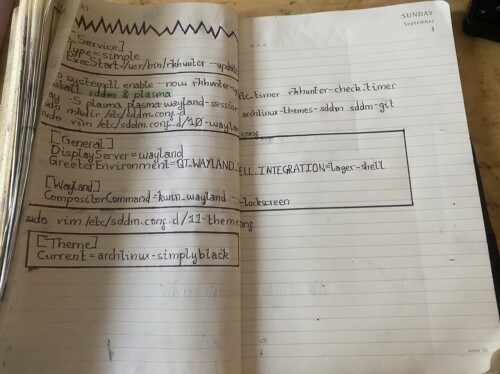 SUNDAY
September
1
[Service]
Type=simple
ExecStart=/usr/bin/rkhunter --upda
systemctl enable --now rkhunter- te.timer rkhunter-check.timer
sddm & plasma
-S plasma plasma-wayland-session archlinux-themes-sddm sddm-git
mkdir /etc/sddm.conf.d
vim /etc/sddm.conf.d/10-waylan conf
[General]
DisplayServer=wayland
GreeterEnvironment=QT_WAYLAND_ ELL_INTEGRATION=layer-shell
[Wayland]
CompositorCommand=kwin_wayland --lockscreen
sudo vim /etc/sddm.conf.d/11-theme onf
[Theme]
Current=archlinux-simplyblack